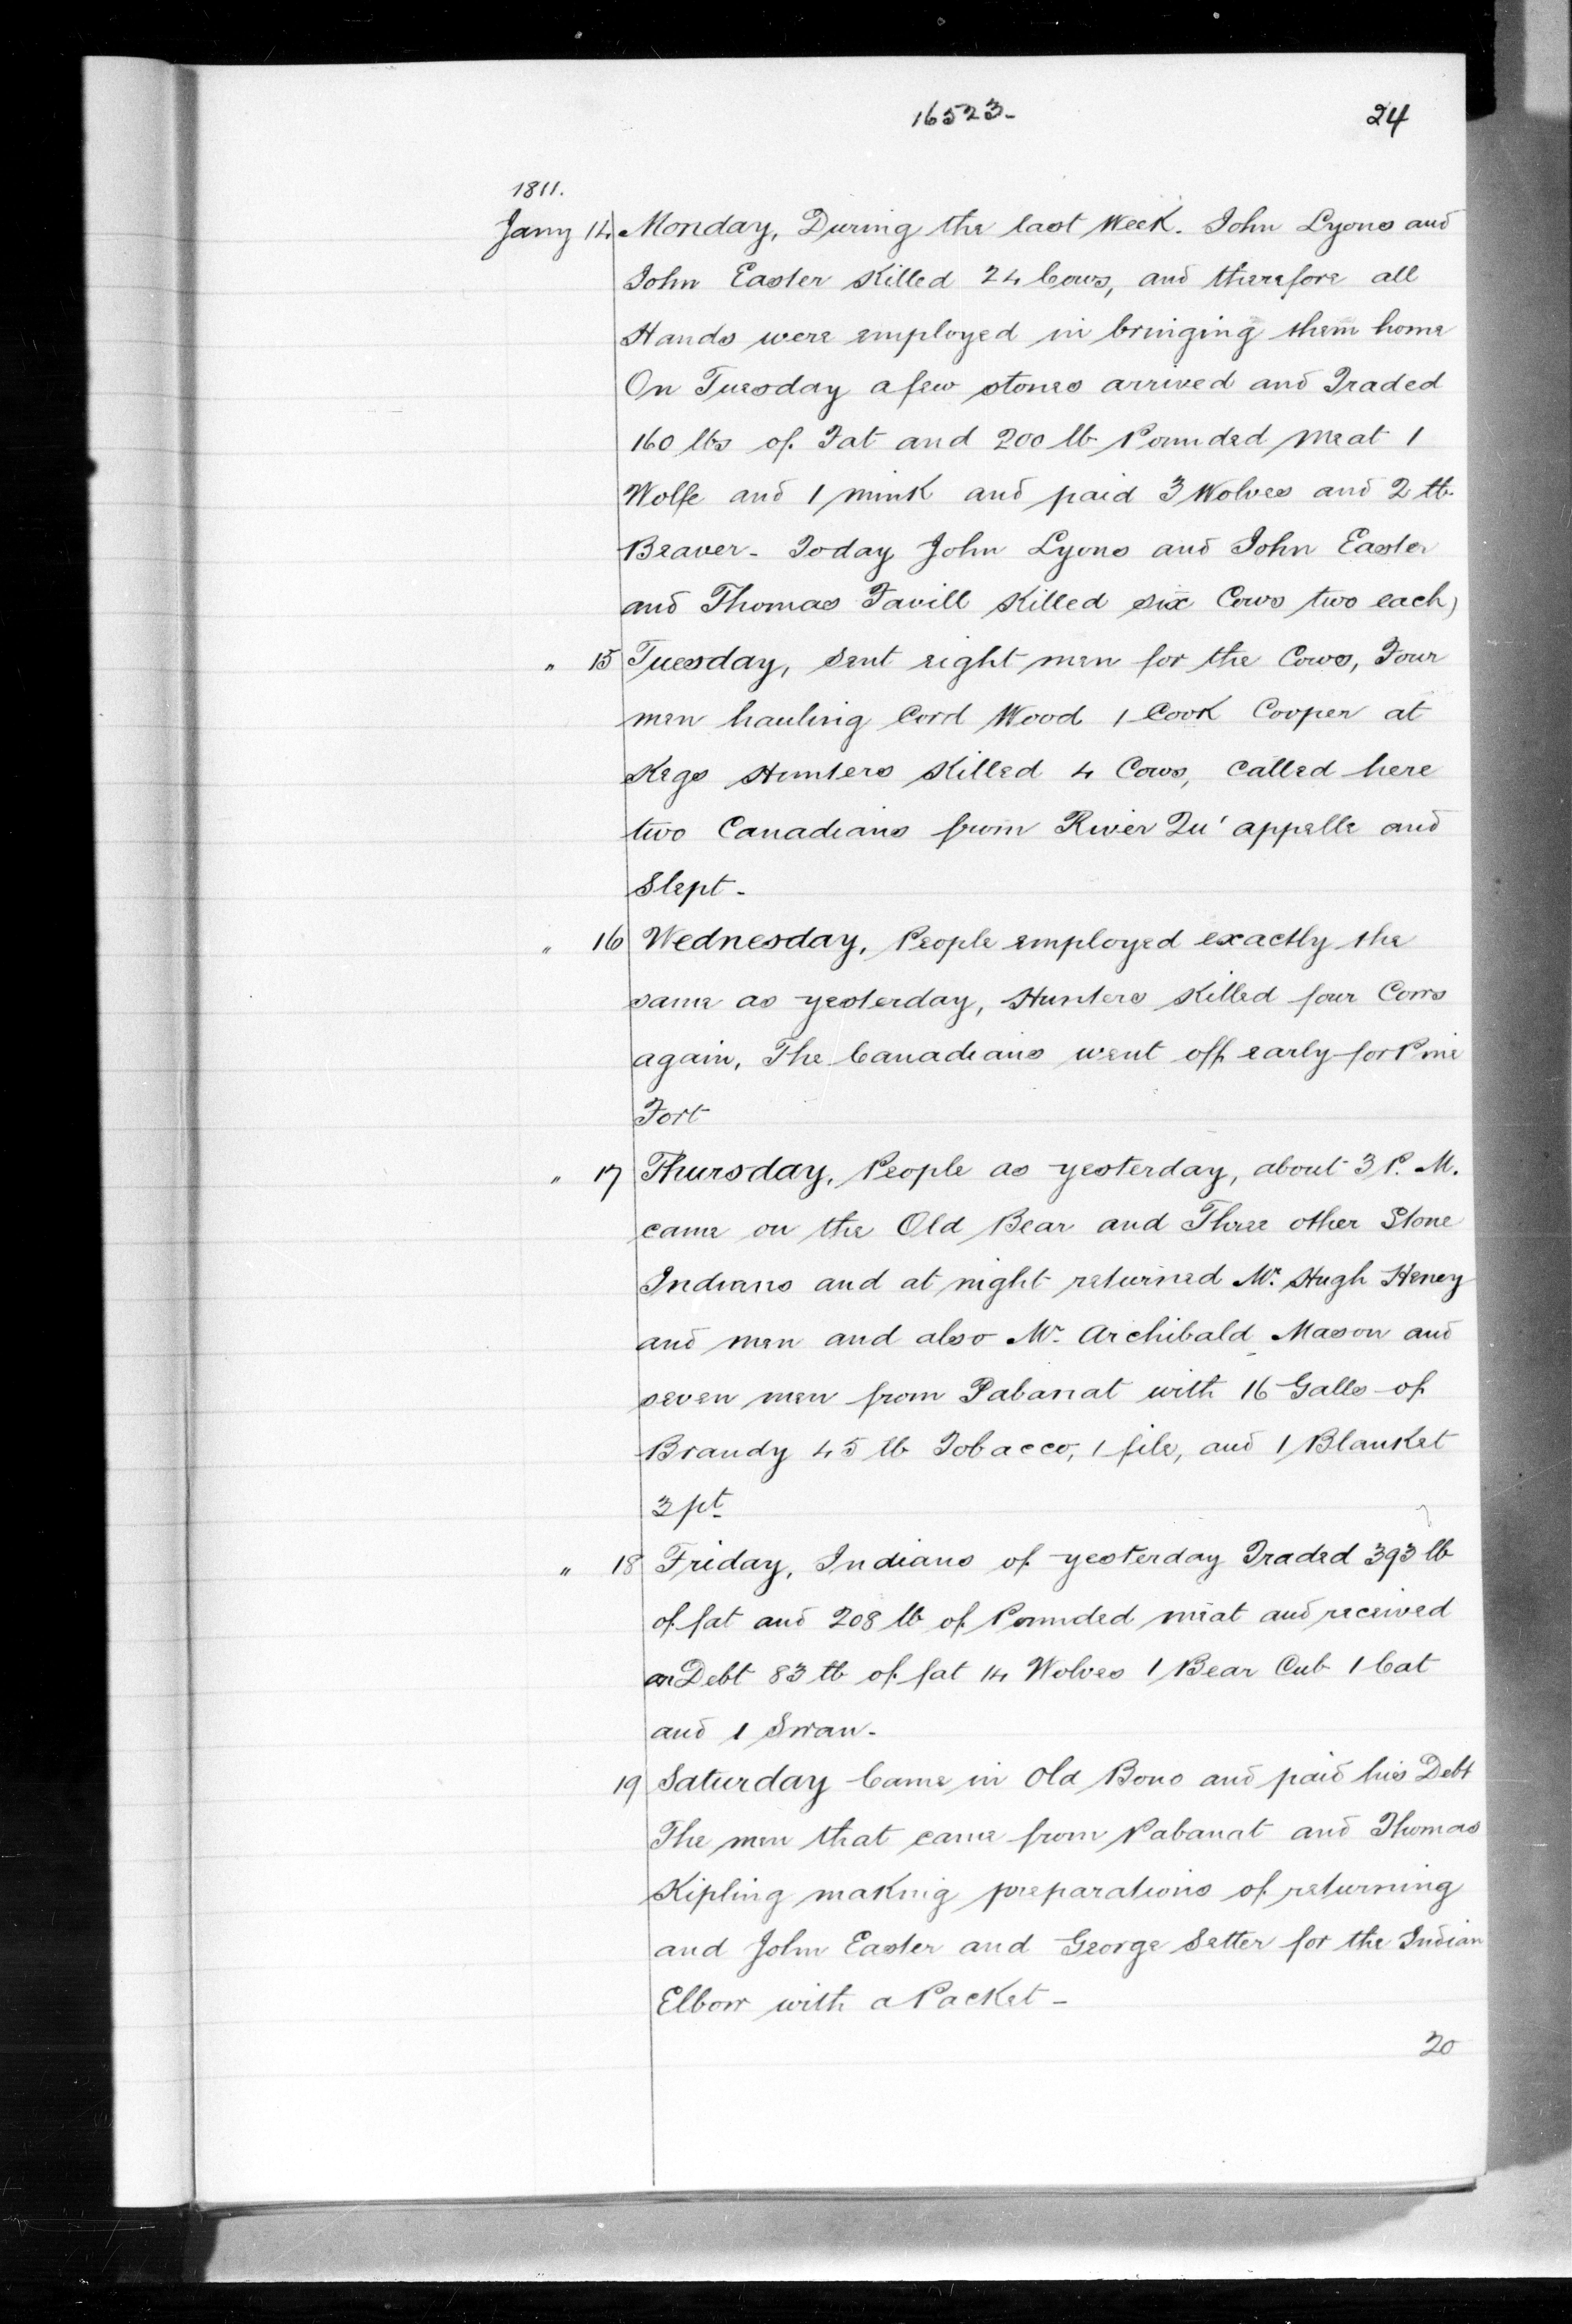 16523-
24
1811.
Jany 14 Monday, During the last Week. John Lyons and
John Easter Killed 24 Cows, and therefore all
Hands were employed in bringing them home
On Tuesday a few stones arrived and Traded
160 lbs of Fat and 200 lb Pounded meat 1
Wolfe and 1 mink and paid 3 Wolves and 2 lb
Beaver - Today John Lyons and John Easter
and Thomas Favill Killed six Cows two each)
" 15 Tuesday, sent eight men for the Cows, Four
men hauling Cord Wood 1 Cook Cooper at
Kegs Hunters Killed 4 Cows, called here
two Canadians from River Qu' appelle and
Slept -
" 16 Wednesday, People employed exactly the
same as yesterday, Hunters Killed four Cows
again, The Canadians went off early for Pine
Fort
" 17 Thursday, People as yesterday, about 3 P. M.
came on the Old Bear and Three other Stone
Indians and at night returned Mr. Hugh Heney
and men and also Mr. Archibald Mason and
seven men from Pabanat with 16 Galls of
Brandy 45 lb Tobacco, 1 file, and 1 Blanket
3 pt
" 18 Friday, Indians of yesterday Traded 393 lb
of fat and 208 lb of Pounded meat and received
on Debt 83 lb of fat 14 Wolves 1 Bear Cub 1 Cat
and 1 Swan -
19 Saturday Came in Old Bono and paid his Debt
The men that came from Pabanat and Thomas
Kipling making preparations of returning
and John Easter and George Setter for the Indian
Elbow with a Packet -
20